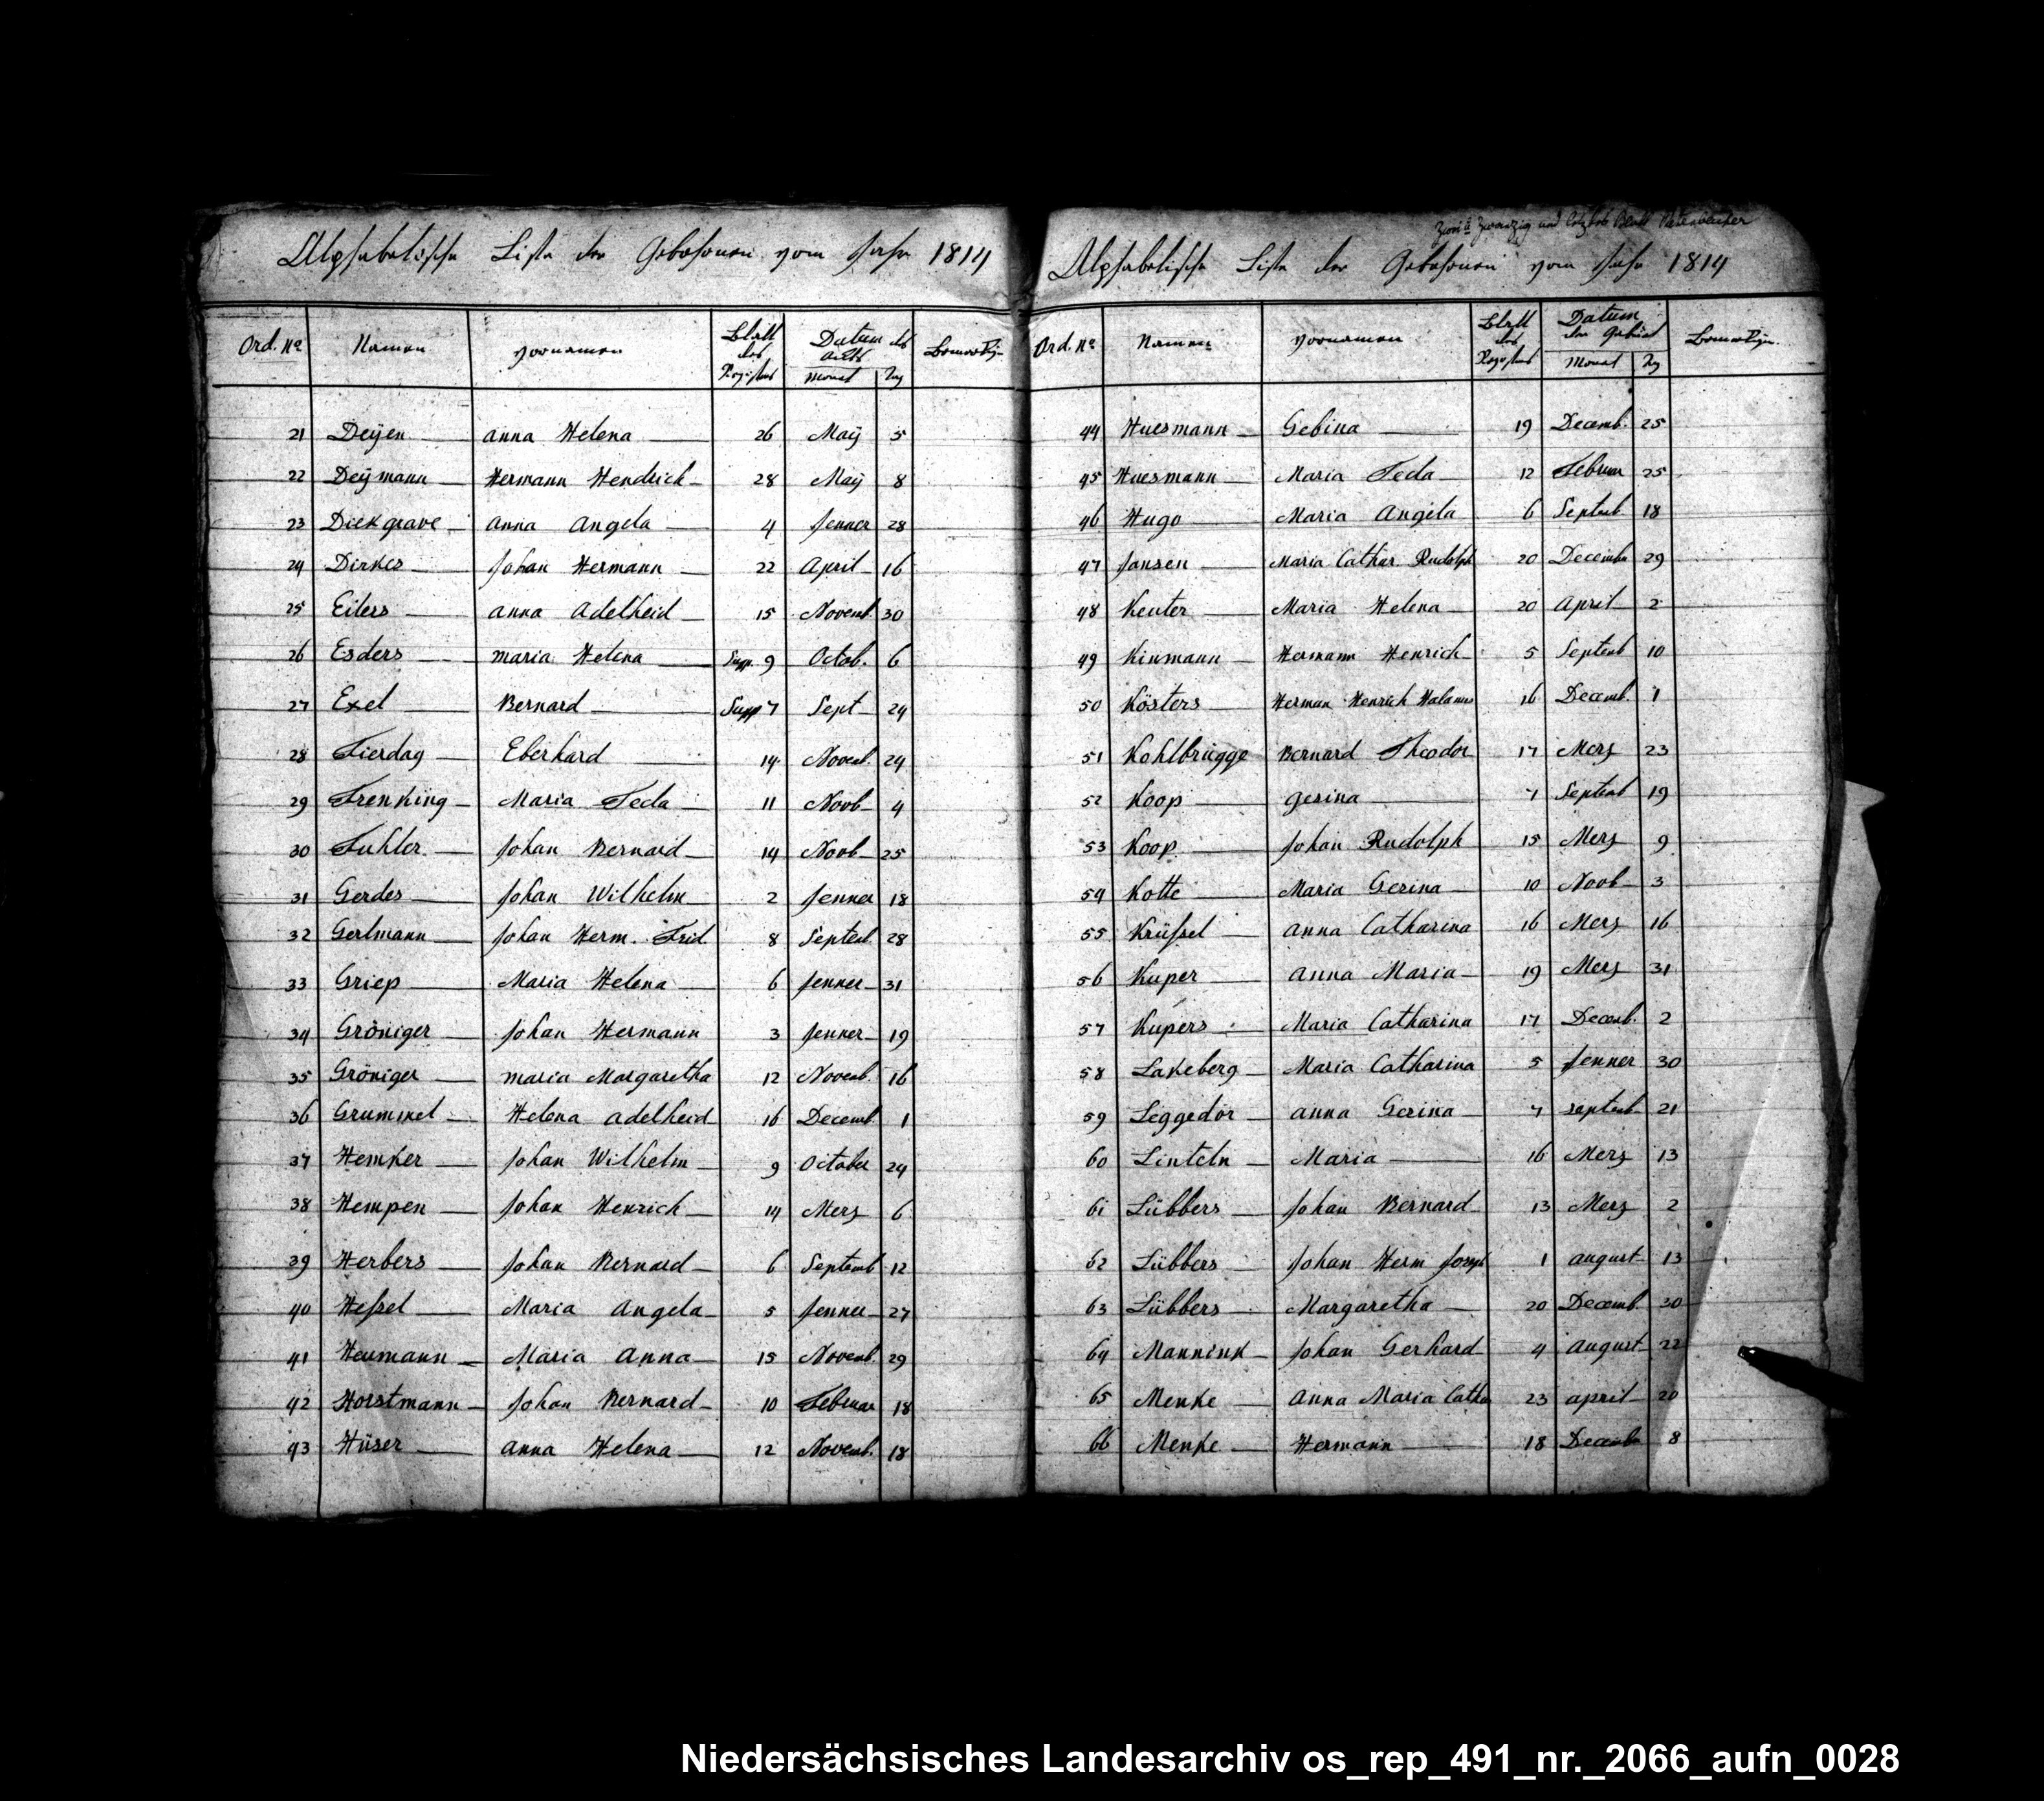 Alphabetische Liste der Gebohrnen vom Jahr 1814
Ord. No Namen Vornamen Blatt des Registers Datum des Acts Monat Tag Bemerkung
21 Deÿen Anna Helena 26 Maÿ 5
22 Deÿmann Hermann Hendrich 28 Maÿ 8
23 Diekgrave Anna Angela 4 Jenner 28
24 Dirkes Johan Hermann 22 April 16
25 Eilers Anna Adelheid 15 Novemb. 30
26 Esders Maria Helena Supp. 9 Octob. 6
27 Exel Bernard Supp 7 Sept 24
28 Fierdag Eberhard 14 Novemb. 24
29 Frenking Maria Feda 11 Novb 4
30 Fuhler Johan Bernard 14 Novb 25
31 Gerdes Johan Wilhelm 2 Jenner 18
32 Gerlmann Johan Herm. Frid. 8 Septemb. 28
33 Griep Maria Helena 6 Jenner 31
34 Gröniger Johan Hermann 3 Jenner 19
35 Gröniger Maria Margaretha 12 Novemb. 16
36 Grummel Helena Adelheid 16 Decemb. 1
37 Hemker Johan Wilhelm 9 October 24
38 Hempen Johan Henrich 14 Merz 6
39 Herbers Johan Bernard 6 Septemb 12
40 Heſsel Maria Angela 5 Jenner 27
41 Heumann Maria Anna 15 Novemb. 29
42 Horstmann Johan Bernard 10 Februar 18
43 Hüser Anna Helena 12 Novemb. 18
Zwei u Zwanzig und letztes Blatt
Alphabetische Liste der Gebohrnen vom Jahr 1814
Ord. No Namen Vornamen Blatt des Registers Datum der Geburt Monat Tag Bemerkung
44 Huesmann Gebina 19 Decemb. 25
45 Huesmann Maria Feda 12 Februar 25
46 Hugo Maria Angela 6 Septemb 18
47 Jansen Maria Cathar. Rudolph 20 Decembr 29
48 Keuter Maria Helena 20 April 2
49 Kinmann Hermann Henrich 5 Septemb 10
50 Kösters Herman Henrich 16 Decemb. 1
51 Kohlbrügge Bernard Theodor 17 Merz 23
52 Koop Gesina 7 Septemb 19
53 Koop Johan Rudolph 15 Merz 9
54 Kotte Maria Gesina 10 Novb 3
55 Krüſsel Anna Catharina 16 Merz 16
56 Kuper Anna Maria 19 Merz 31
57 Kupers Maria Catharina 17 Decemb. 2
58 Lakeberg Maria Catharina 5 Jenner 30
59 Leggedör Anna Gesina 7 Septemb 21
60 Linteln Maria 16 Merz 13
61 Lübbers Johan Bernard 13 Merz 2
62 Lübbers Johan Herm Joseph 1 August 13
63 Lübbers Margaretha 20 Decemb. 30
64 Mannink Johan Gerhard 4 August 22
65 Menke Anna Maria Catha 23 April 20
66 Menke Hermann 18 Decembr 8
Niedersächsisches Landesarchiv os_rep_491_nr._2066_aufn_0028